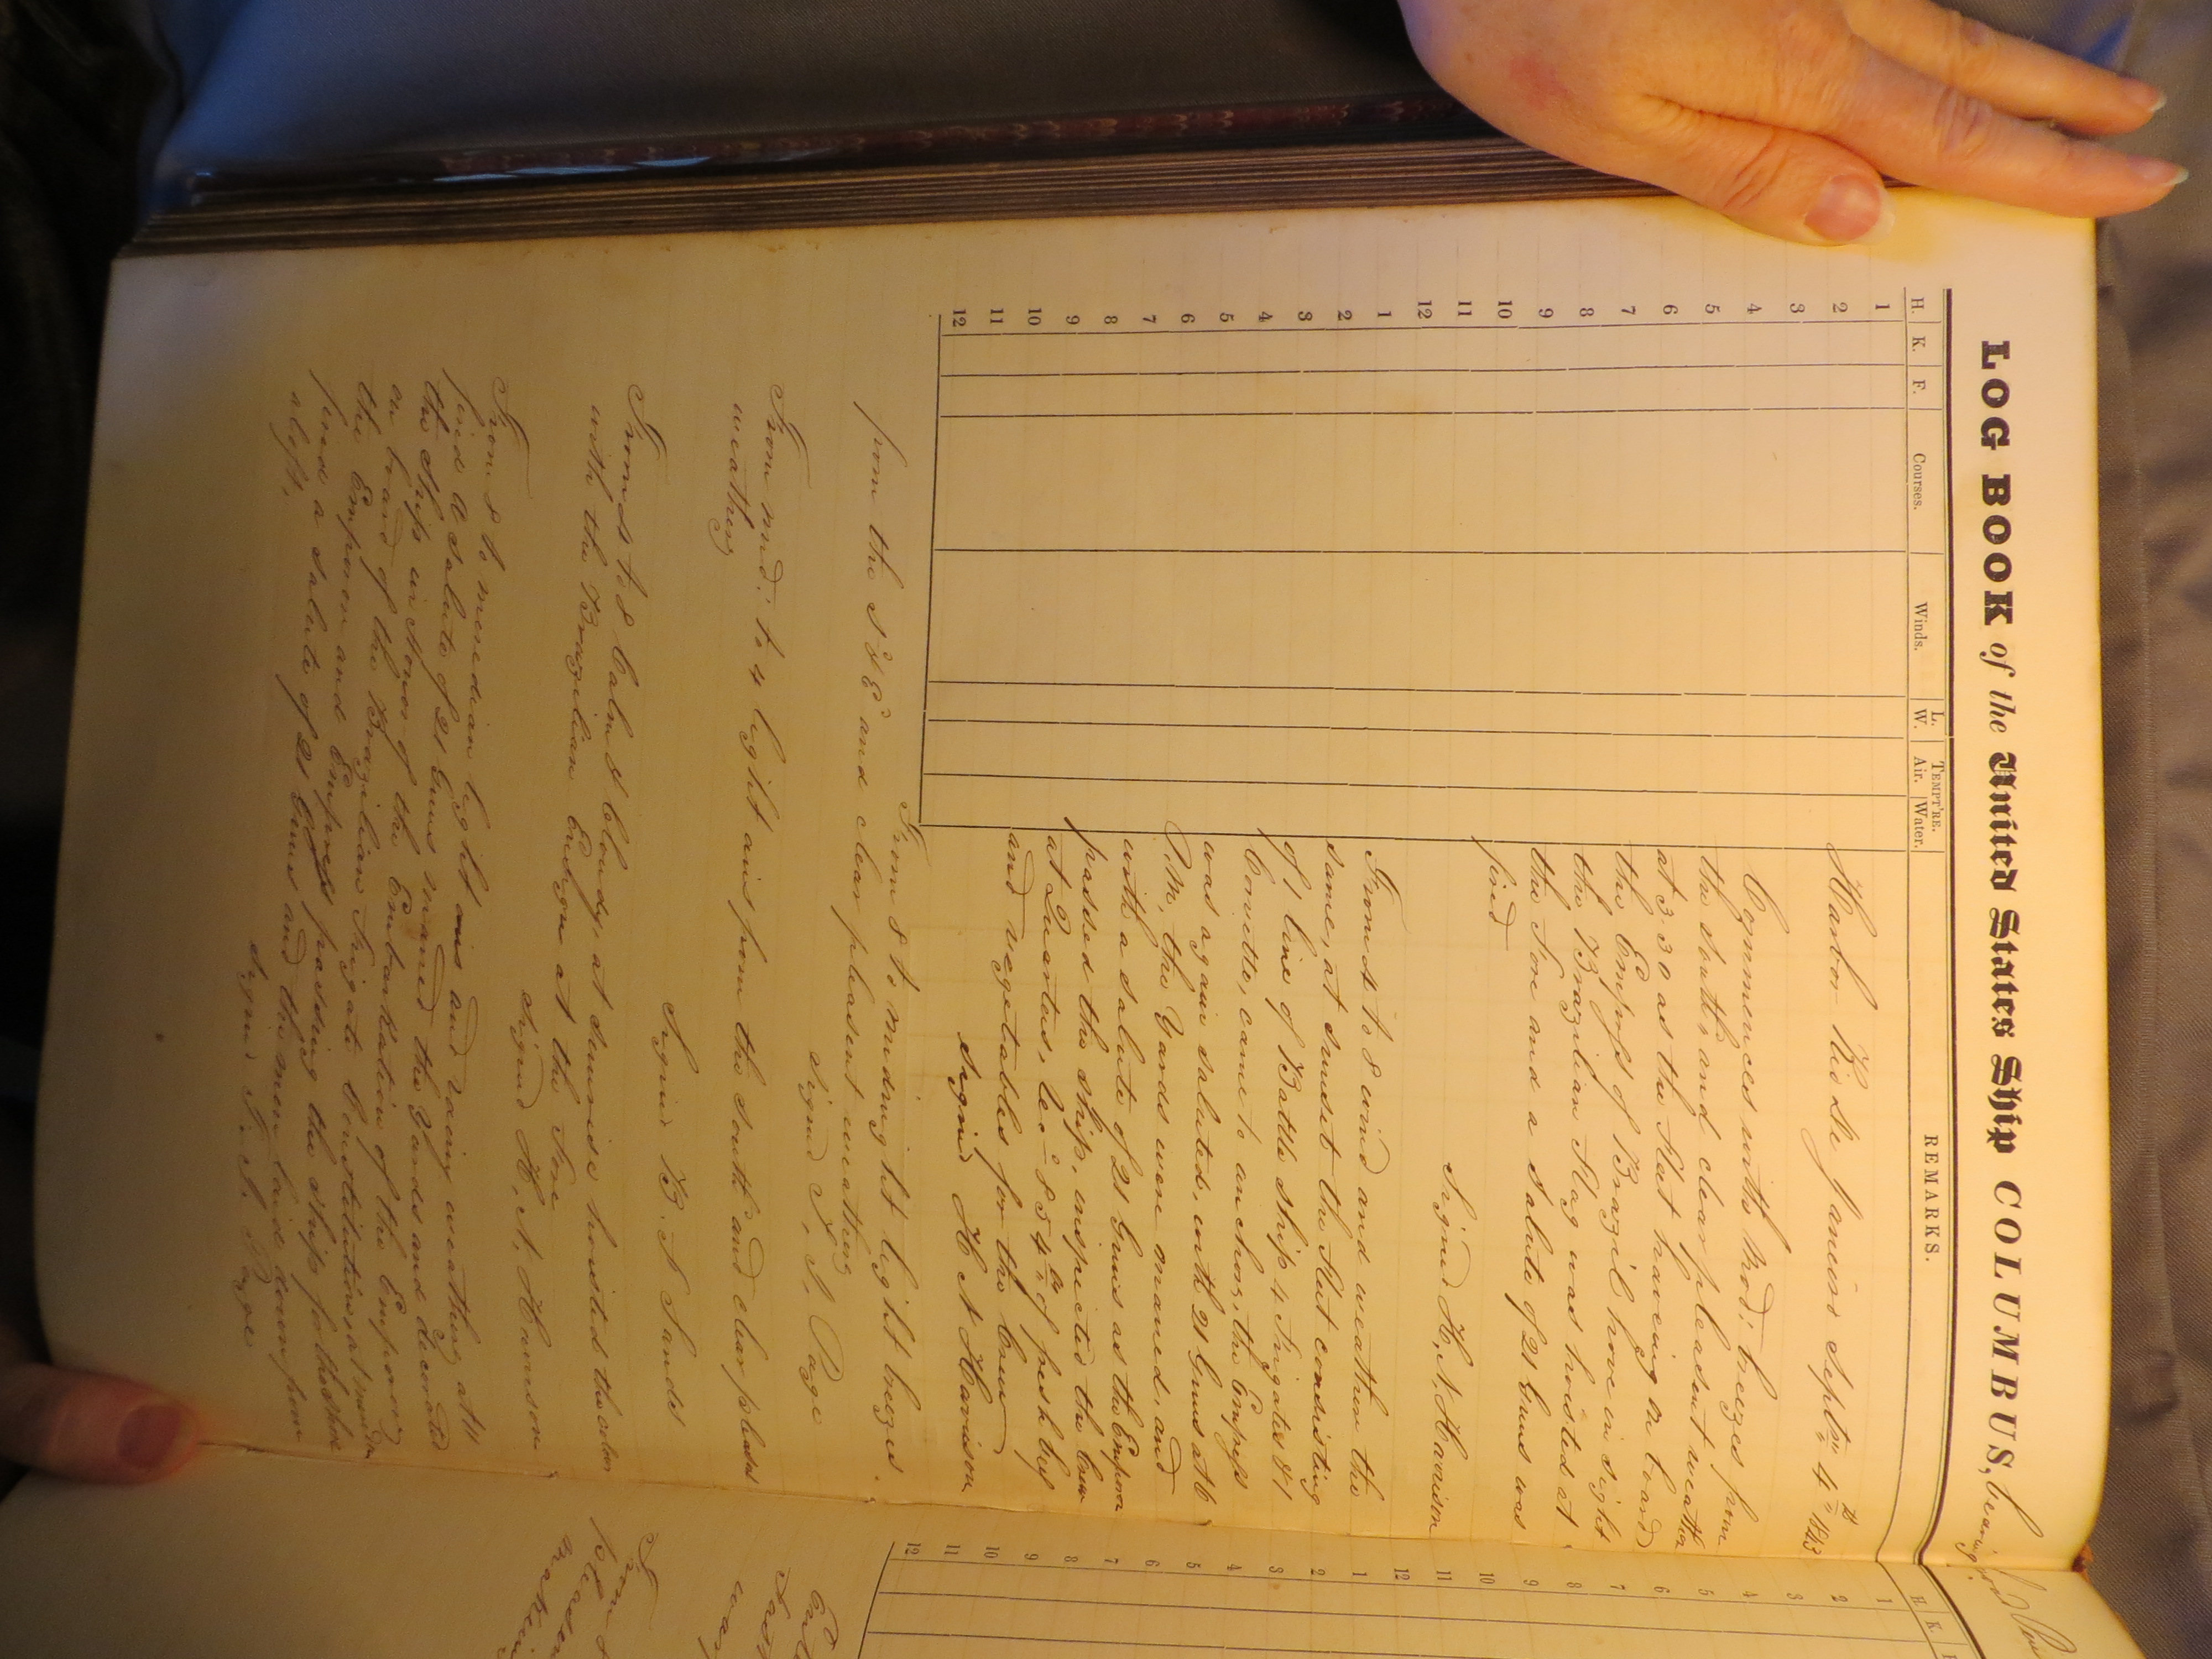 LOG BOOK of the United States Ship COLUMBUS, bearing
H. K. F. Courses. Winds. L. W. TEMPT'RE. Air. Water. REMARKS.
1
2
3
4
5
6
7
8
9
10
11
12
1
2
3
4
5
6
7
8
9
10
11
12
Harbor Rio de Janeiro Septbr 4th 1843
Commences with mod: breezes from
the south'd and clear pleasent weather
at 3.30 as the Fleet having on board
the Empress of Brazil hove in sight
the Brazilian Flag was hoisted at
the Fore and a Salute of 21 Guns was
fired
Signed H. N. Harrison
From 4 to 8 wind and weather the
same, at sunset the Fleet consisting
of 1 line of Battle ship 4 Frigates & 1
Corvette, came to anchor, the Empress
was again saluted, with 21 Guns at 6
P.M. the Yards were maned, and
with a salute of 21 Guns as the Emperor
passed the ship, inspected the Crew
at Quarters, rec'd 854 lbs of fresh beef
and vegetables for the Crew
Signed H N Harrison
From 8 to midnight light breezes
from the S'd & E'd and clear pleasent weather
Signed F. S. Page
From mid: to 4 light airs from the south'd and clear pleasent
weather
Signed B. F Sands
From 4 to 8 Calm & Cloudy, at sunrise hoisted the colors
with the Brazilian Ensign at the Fore
Signed H. N. Harrison
From 8 to meredian light airs and rainy weather, at 11
fired a Salute of 21 Guns maned the Yards and decorated
the Ship in Honor of the Embarkation of the Emperor
on board of the Brazilian Frigate Constitution, at
the Emperor and Empress passing the ship
fired a salute of 21 Guns and the men laid down from
aloft,
Signed
H. K.
1
2
3
4
5
6
7
8
9
10
11
12
1
2
3
4
5
6
7
8
9
10
11
12